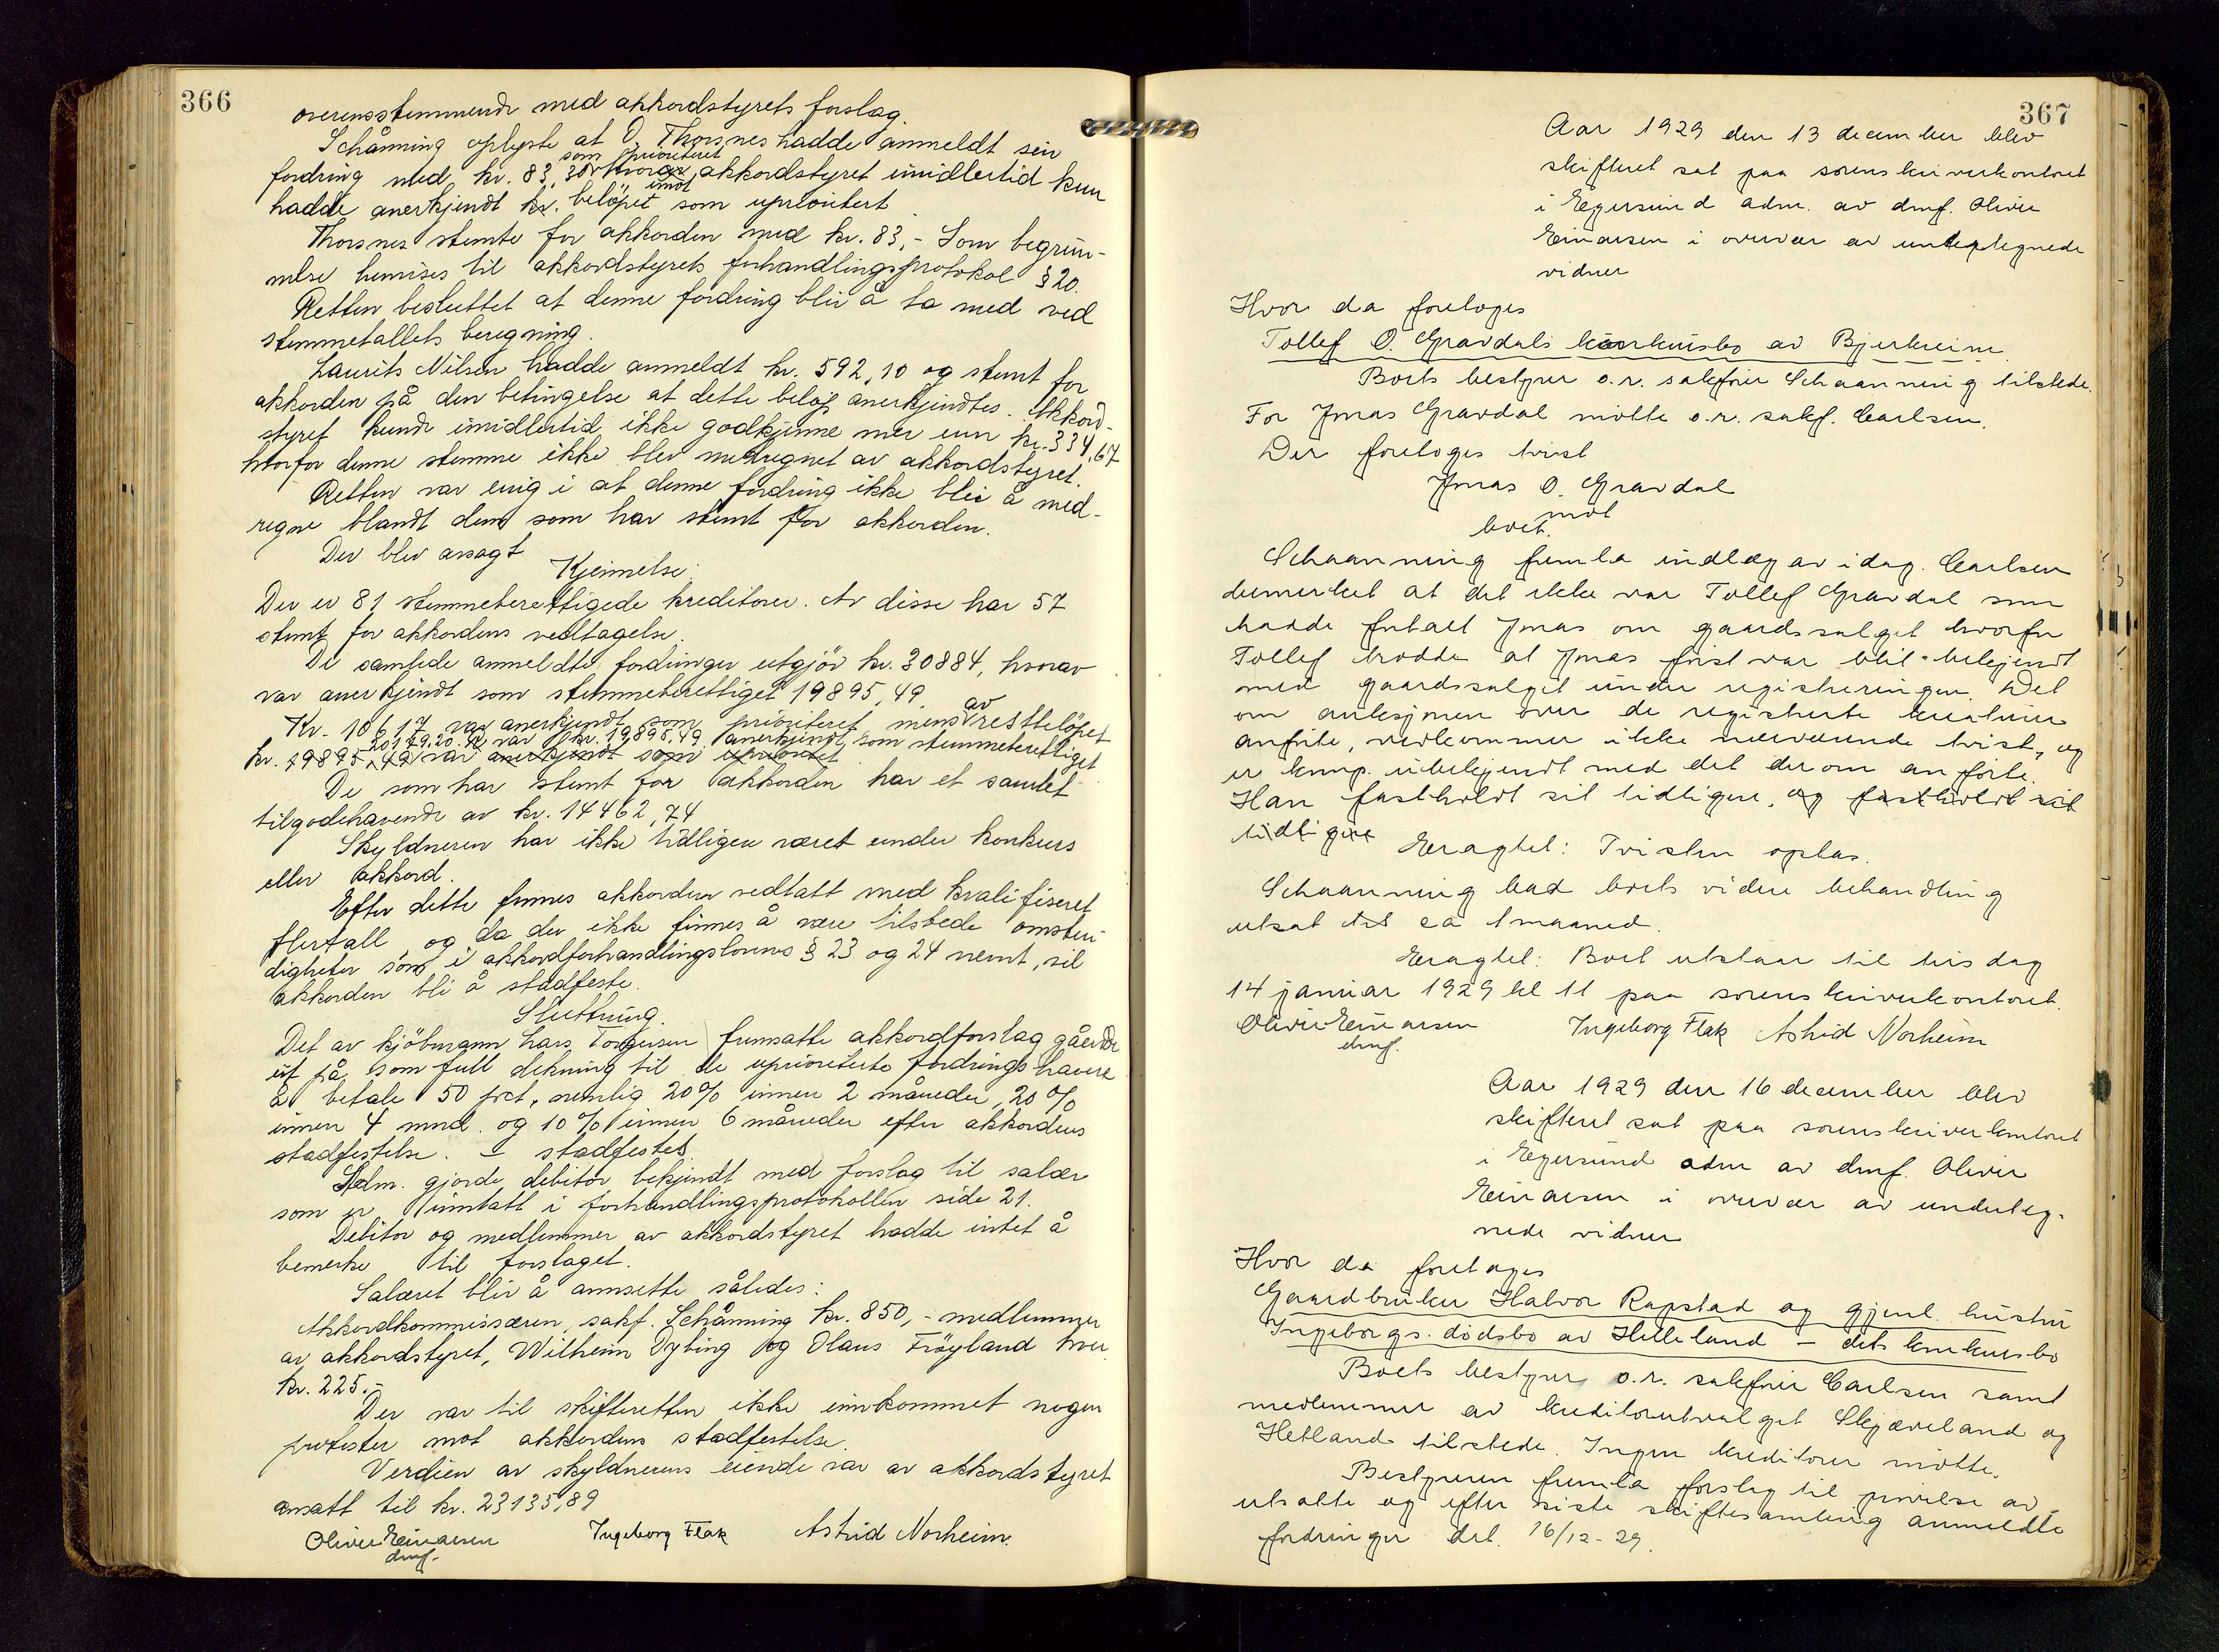 366
overensstemmende med akkordstyrets forslag.
Schånning oplyste at O. Thorsnes hadde anmeldt sin
som prioriteret
fordring med kr. 83,30 hvorav akkordstyret imidlertid kun
imot
hadde anerkjendt kr. beløpet som uprioritert
Thorsnes stemte for akkorden med kr. 83,- Som begrun-
nelse henvises til akkordstyrets forhandlingsprotokol § 20.
Retten besluttet at denne fordring blir å ta med ved
stemmetallets beregning.
Laurits Nilsen hadde anmeldt kr. 592,10 og stemt for
akkorden på den betingelse at dette beløp anerkjendtes. Akkord-
styret kunde imidlertid ikke godkjenne mer enn kr. 334,67
hvorfor denne stemme ikke blev medregnet av akkordstyret.
Retten var enig i at denne fordring ikke blir å med-
regne blandt dem som har stemt for akkorden.
Der blev avsagt
Kjennelse:
Der er 81 stemmeberettigede kreditorer. Av disse har 57
stemt for akkordens vedtagelse.
De samlede anmeldte fordringer utgjör kr. 30884, hvorav
var anerkjendt som stemmeberettiget 19895,49.
Kr. 10617 var anerkjendt som prioriteret mens av restbelöpet
20179.20. kr var kr. 19895.49 anerkjendt som stemmeberettiget
kr. 19895,49 var anerkjendt som uprioritet
De som har stemt for akkorden har et samlet
tilgodehavende av kr. 14462,74
Skyldneren har ikke tidligere været under konkurs
eller akkord.
Efter dette finnes akkorden vedtatt med kvalifiseret
flertall, og da der ikke finnes å være tilstede omsten-
digheter som i akkordforhandlingslovens § 23 og 24 nevnt, vil
akkorden bli å stadfeste.
Sluttning.
Det av kjöbmann Lars Torgersen fremsatte akkordforslag gående
ut på som full dekning til de uprioriterte fordringshavere
å betale 50 prct, nemlig 20% innen 2 måneder, 20%
innen 4 mnd. og 10% innen 6 måneder efter akkordens
stadfestelse. I stadfestes.
Adm. gjorde debitor bekjendt med forslag til salær
som er inntatt i forhandlingsprotokollen side 21.
Debitor og medlemmer av akkordstyret hadde intet å
bemerke til forslaget.
Salæret blir å annsette således:
Akkordkommissæren, sakf. Schånning kr. 850,- medlemmer
av akkordstyret, Wilhelm Dybing og Olaus Fröyland hver
kr. 225.-
Der var til skifteretten ikke innkommet nogen
protester mot akkordens stadfestelse.
Verdien av skyldnerens eiende var av akkordstyret
ansatt til kr. 23135,89
Oliver Einarsen Ingeborg Flak Astrid Norheim.
dmf.
367
Aar 1929 den 13 december blev
skifteret sat paa sorenskriverkontoret
i Egersund adm. av dmf. Oliver
Einarsen i overvær av undertegnede
vidner
Hvor da foretoges
Tollef O. Gravdals konkursbo av Bjerkreim.
Boets bestyrer o.r. sakförer Schaanning tilstede.
For Jonas Gravdal mötte o.r. sakf. Carlsen.
Der foretoges tvist
Jonas O. Gravdal
mot
boet.
Schaanning fremla indlæg av idag. Carlsen
bemerket at det ikke var Tollef Gravdal som
hadde fortalt Jonas om gaardssalget hvorfor
Tollef trodde at Jonas först var blit bekjendt
med gaardssalget under registreringen. Det
om auksjonen over de registrerte kreaturer
anförte, vedkommer ikke nærværende tvist, og
er komp. ubekjendt med det derom anförte.
Han fastholdt sit tidligere, og fastholdt sit
tidligere
Eragtet: Tvisten optas.
Schaanning bad boets videre behandling
utsat til ca 1 maaned.
Eragtet: Boet utstaar til tirsdag
14 januar 1929 kl 11 paa sorenskriverkontoret.
Oliver Einarsen Ingeborg Flak Astrid Norheim
dmf.
Aar 1929 den 16 desember blev
skifteret sat paa sorenskriverkontoret
i Egersund adm av dmf. Oliver
Einarsen i overvær av underteg-
nede vidner
Hvor da foretoges
Gaardbruker Halvor Rapstad og gjenl. hustru
Ingeborgs. dödsbo av Helleland - dets konkursbo
Boets bestyrer o.r. sakförer Carlsen samt
medlemmer av kreditorutvalget Skjæveland og
Hetland tilstede. Ingen kreditorer mötte.
Bestyreren fremla forslag til prövelse av
utsatte og efter siste skiftesamling anmeldte
fordringer dat. 16/12-29.